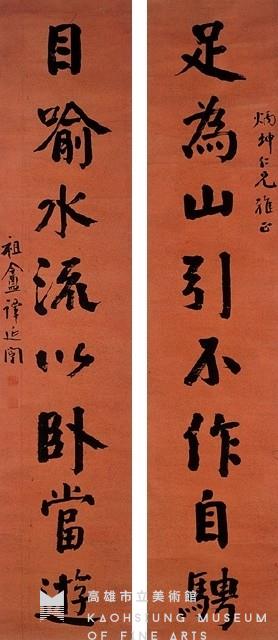 炳坤仁兄雅正
足為山引不作自騁
目喻水流以臥當遊
祖盦譚延闓
高雄市立美術館
KAOHSIUNG MUSEUM
OF FINE ARTS